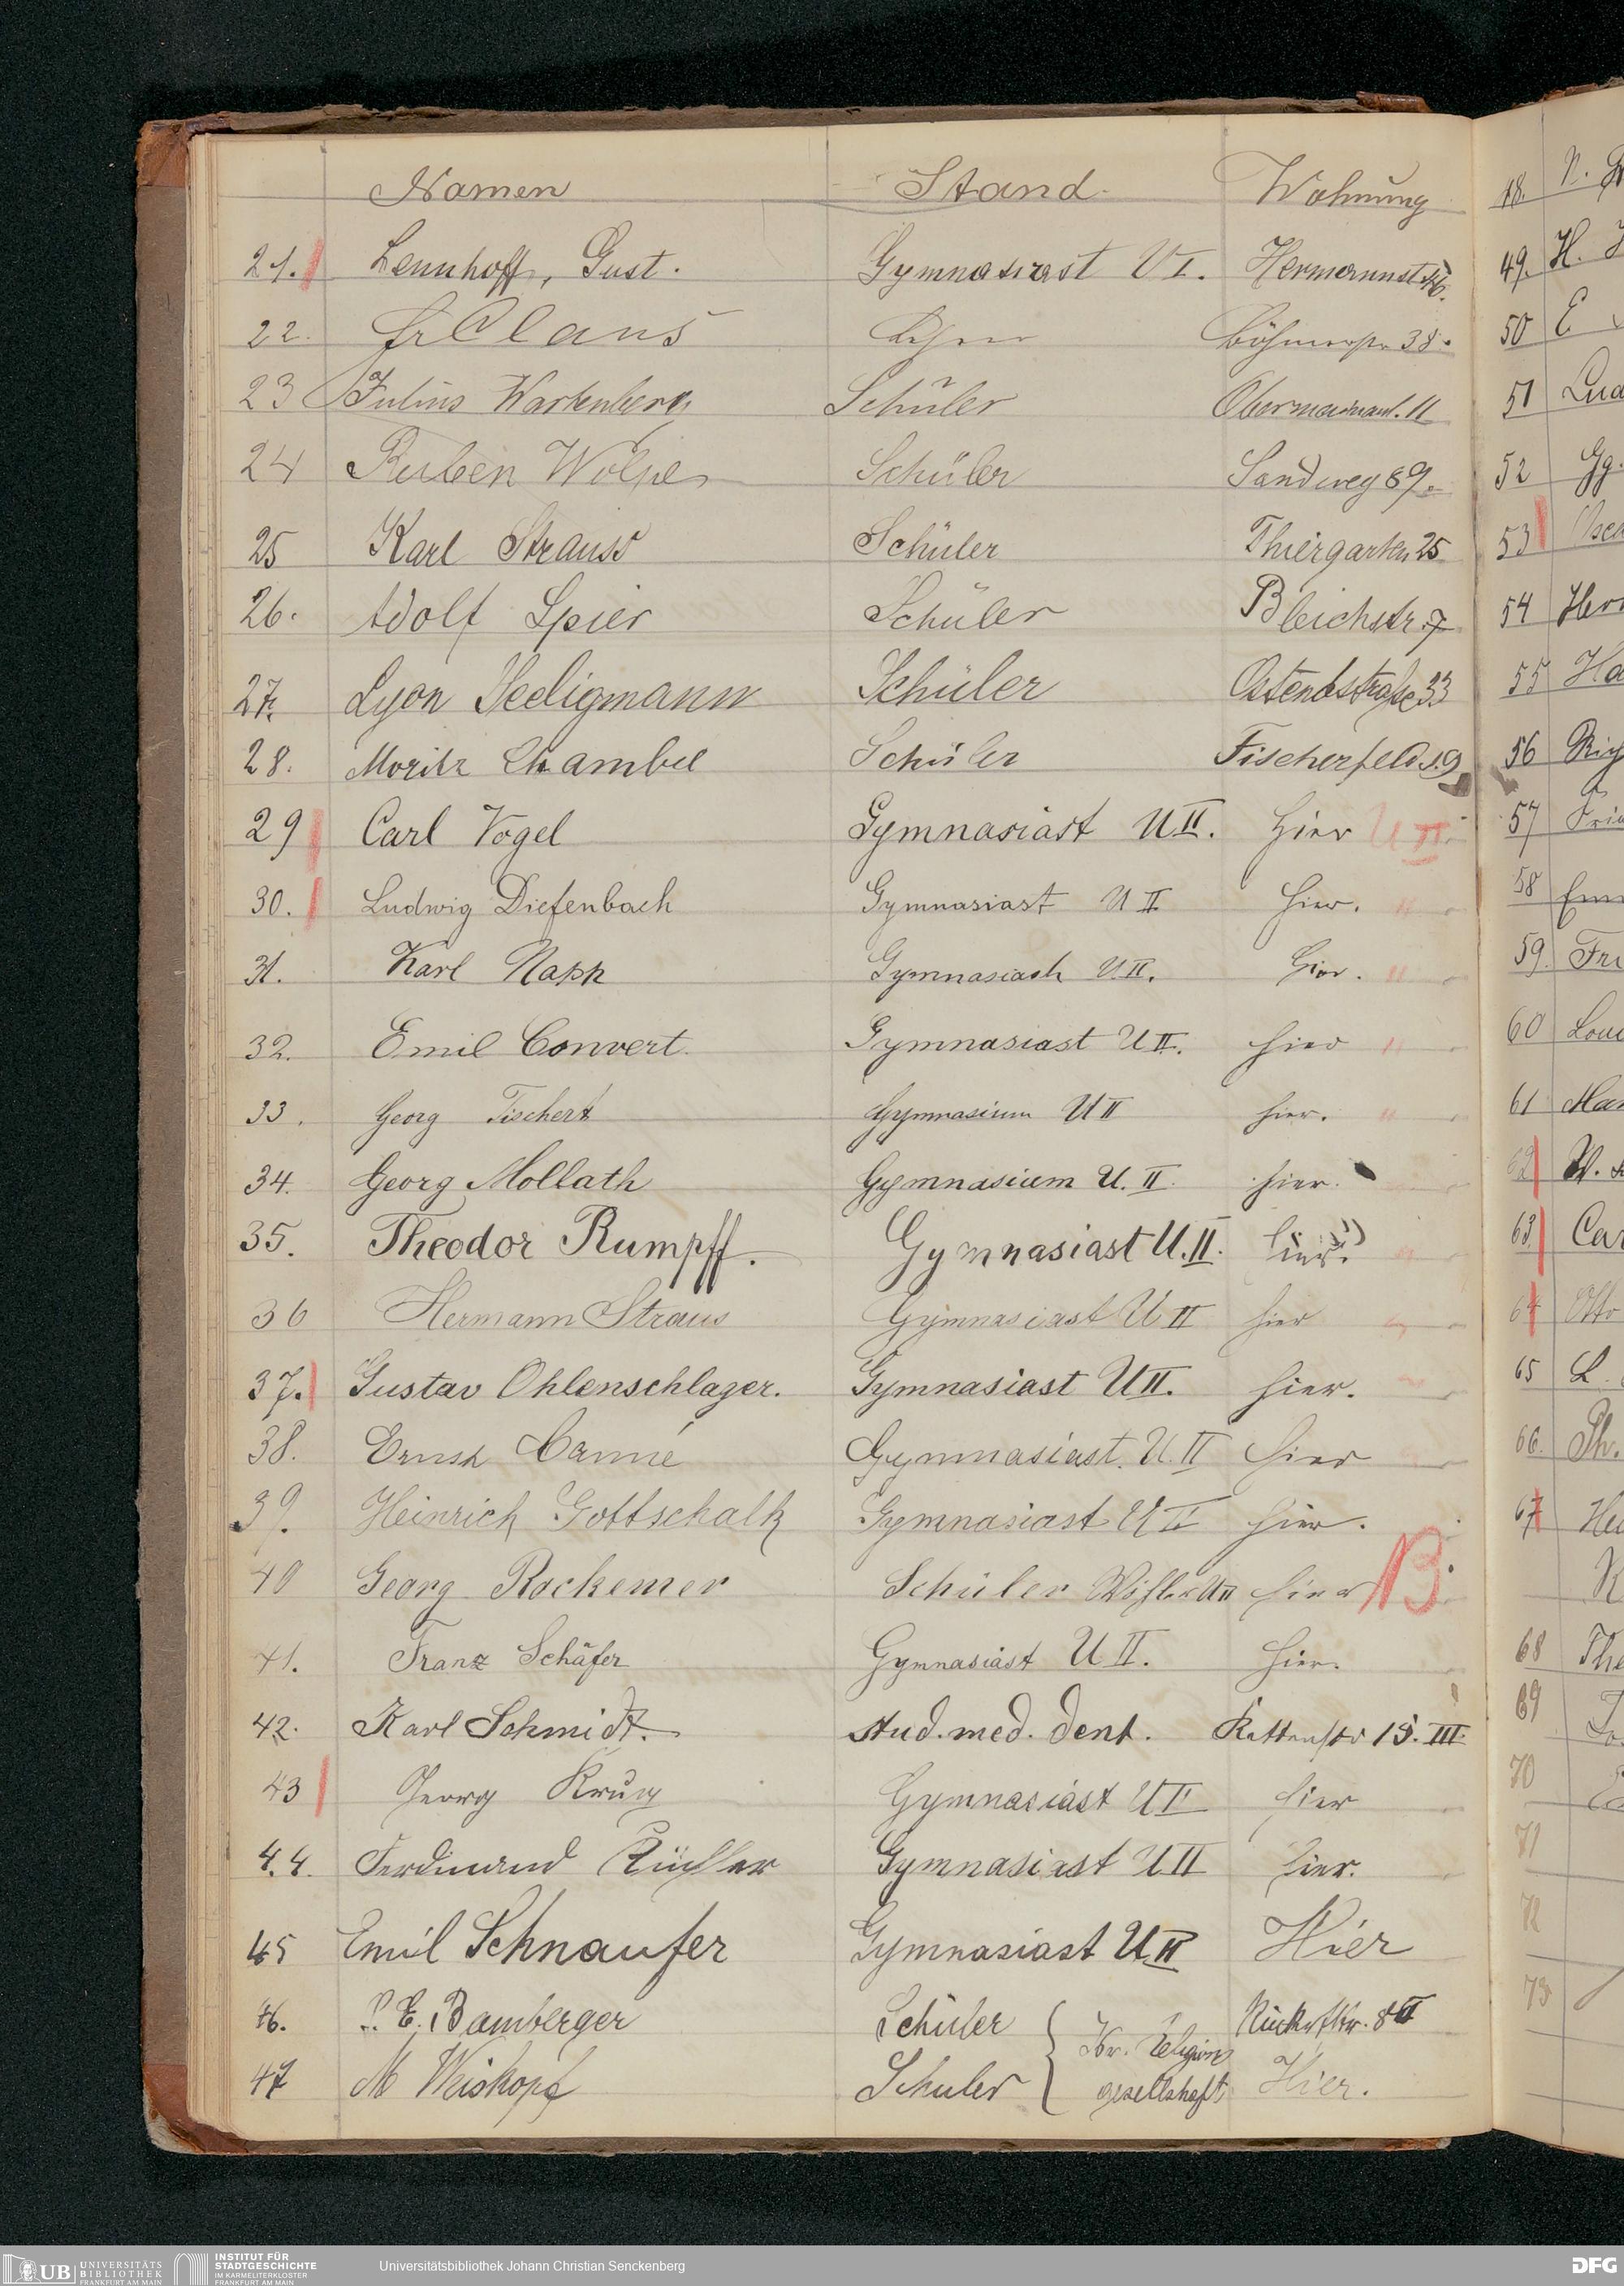 Namen Stand Wohnung
21. Lennhoff, Gust. Gymnasiast UI. Hermannst
22. Fr Claus 38.
23 Julius Wartenberg Schüler Obermainanl. 11
24 Ruben Wolpe Schüler Sandweg 89.
25 Karl Strauss Schüler Thiergarten 25
26. Adolf Spier Schüler Bleichstr. 7
27. Lyon Seeligmann Schüler Ostendstraße 33
28. Moritz Schüler Fischerfeld s. 9
29 Carl Vogel Gymnasiast UII. Hier UII.
30. Ludwig Diefenbach Gymnasiast UII hier. "
31. Karl Napp Gymnasiast UII. hier. "
32. Emil Convert. Gymnasiast UII. hier "
33. Georg Tischert Gymnasium UII hier. "
34. Georg Mollath Gymnasium U. II. hier.
35. Theodor Rumpff. Gymnasiast U.II. hier. "
36 Hermann Straus Gymnasiast UII hier "
37. Gustav Ohlenschlager. Gymnasiast UII. hier. "
38. Ernst Canné Gymnasiast. U.II hier
39. Heinrich Gottschalk Gymnasiast UII hier.
40 Georg Rockemer Schüler Wöhler UII hier B
41. Franz Schäfer Gymnasiast UII. hier.
42. Karl Schmidt. stud. med. dent. 15. III.
43 Georg Krug Gymnasiast UII hier
44. Ferdinand Küchler Gymnasiast UII hier.
45 Emil Schnaufer Gymnasiast UII Hier
46. S. E. Bamberger Schüler Rückertstr. 8 II
Isr. Religions
47 M Weiskopf Schuler gesellschaft Hier.
48. N.
49. H.
50 E
51
52 Gg.
53
54
55
56
57
58
59.
60
61
62 W.
63
64 Otto
65 L.
66. Ph.
67
68
69
70
71
72
73
UB UNIVERSITÄTS
BIBLIOTHEK
FRANKFURT AM MAIN
INSTITUT FÜR
STADTGESCHICHTE
IM KARMELITERKLOSTER
FRANKFURT AM MAIN
Universitätsbibliothek Johann Christian Senckenberg
DFG